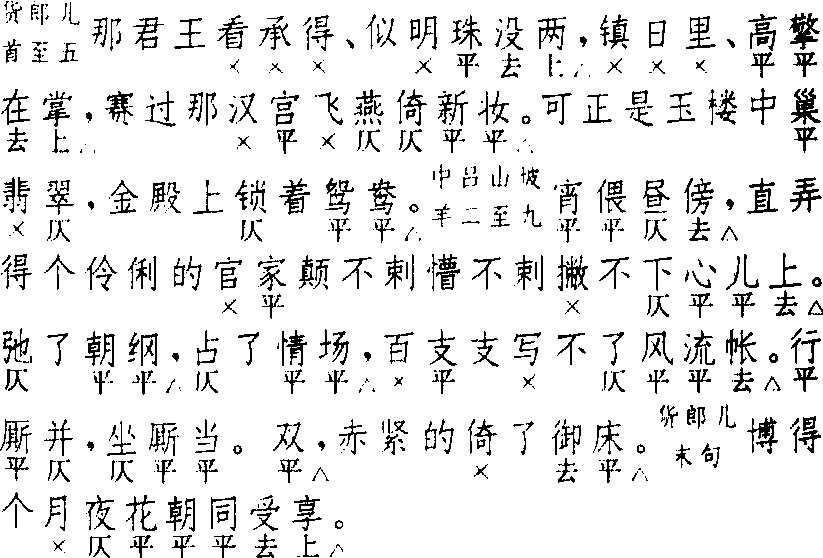 货郎儿首至五 那君王看承得、似明珠没两，镇日里、高擎
× × × × 平 去 上△ × × × 平 平
在掌，赛过那汉宫飞燕倚新妆。可正是玉楼中巢
去 上△ × 平 × 仄 仄 平 平△ 平
翡翠，金殿上锁着鸳鸯。中吕山坡羊二至九 宵偎昼傍，直弄
× 仄 仄 平 平△ 平 平 仄 去△
得个伶俐的官家颠不剌懵不剌撇不下心儿上。
× 平 × 仄 平 平 去△
弛了朝纲，占了情场，百支支写不了风流帐。行
仄 平 平△ 仄 平 平△ × 平 × 仄 平 平 去△ 平
厮并，坐厮当。双，赤紧的倚了御床。货郎儿末句 博得
平 仄 仄 平 平 平△ × 去 平△
个月夜花朝同受享。
× 仄 平 平 平 去 上△